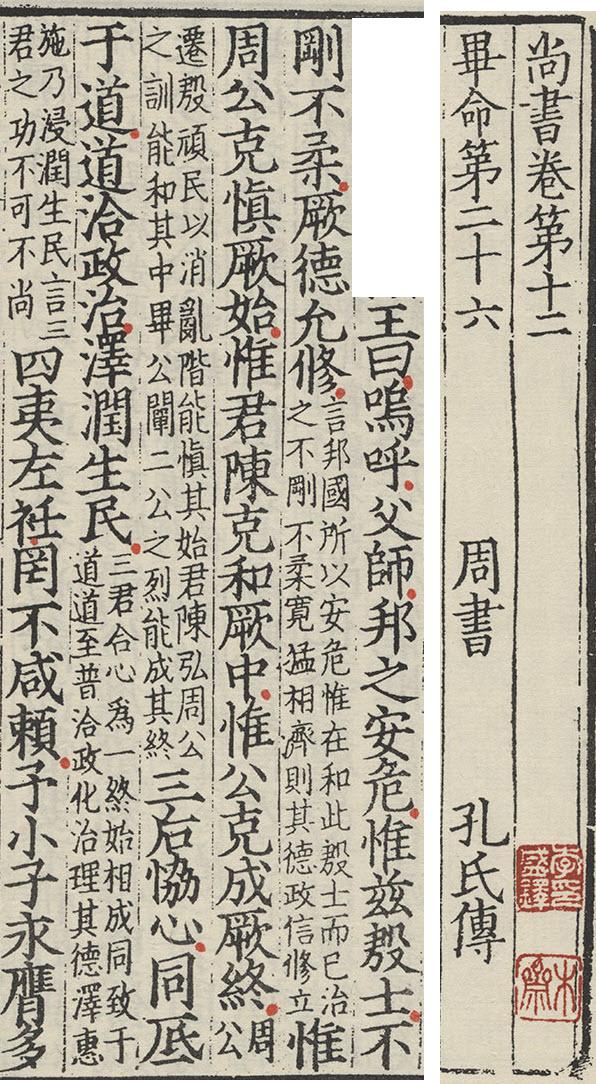 尚書卷第十二
李印盛鐸
木齋
畢命第二十六 周書 孔氏傳
王曰嗚呼父師邦之安危惟茲殷士不
剛不柔厥德允修言邦國所以安危惟在和此殷士而已治之不剛不柔寬猛相濟則其德政信修立惟
周公克愼厥始惟君陳克和厥中惟公克成厥終周公
遷殷頑民以消亂階能愼其始君陳弘周公之訓能和其中畢公闡二公之烈能成其終三后恊心同厎
于道道洽政治澤潤生民三君合心爲一終始相成同致于道道至普洽政化治理其德澤惠
施乃浸潤生民言三君之功不可不尚四夷左衽罔不咸賴予小子永膺多